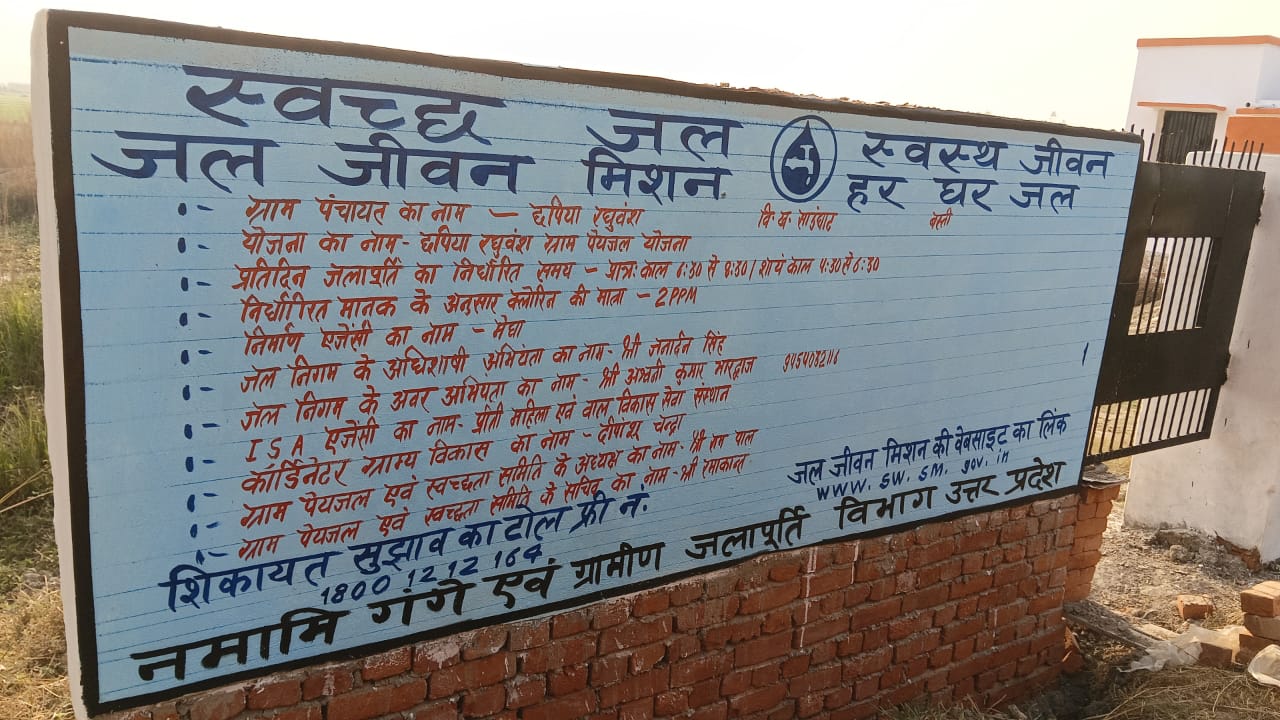 स्वच्छ जल स्वस्थ जीवन
जल जीवन मिशन हर घर जल
:- ग्राम पंचायत का नाम - छपिया रघुवंश वि. ख. साऊंघाट बस्ती
:- योजना का नाम- छपिया रघुवंश ग्राम पेयजल योजना
:- प्रतिदिन जलापूर्ति का निर्धारित समय - प्रात्र: काल 6:30 से 8:30 / शायं काल 4:30 से 6:30
:- निर्धारित मानक के अनुसार क्लोरिन की मात्रा - 2PPM
:- निर्माण एजेंसी का नाम - मेघा
:- जल निगम के अधिशाषी अभियंता का नाम- श्री जनार्दन सिंह
:- जल निगम के अवर अभियंता का नाम - श्री अश्वनी कुमार भारद्वाज
:- ISA एजेंसी का नाम- प्रीती महिला एवं बाल विकास सेवा संस्थान
:- कॉर्डिनेटर ग्राम्य विकास का नाम - दीपांशू चन्द्रा
:- ग्राम पेयजल एवं स्वच्छता समिति के अध्यक्ष का नाम- श्री पाल
:- ग्राम पेयजल एवं स्वच्छता समिति के सचिव का नाम - श्री रमाकान्त
शिकायत सुझाव का टोल फ्री नं.
1800 12 12 164
जल जीवन मिशन की वेबसाइट का लिंक
www. sw. sm. gov. in
नमामि गंगे एवं ग्रामीण जलापूर्ति विभाग उत्तर प्रदेश